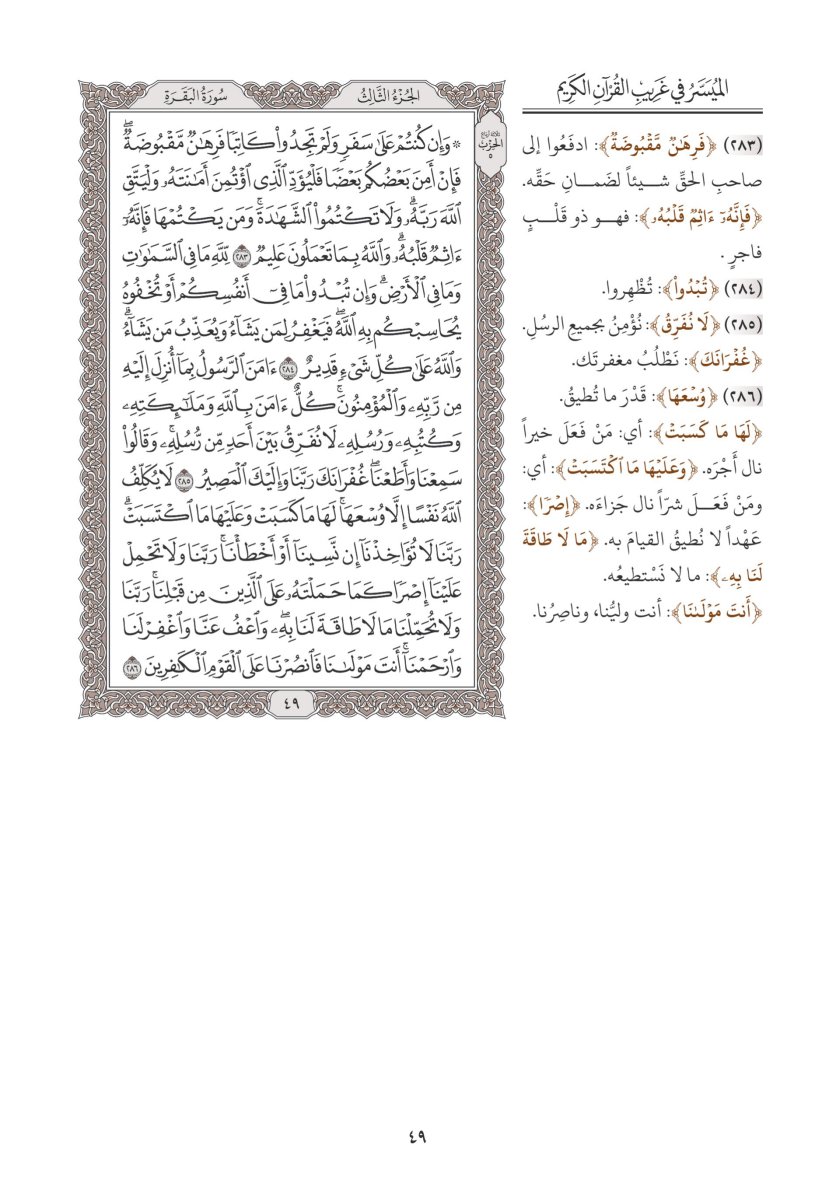 الميُسَّرُ في غَرِيبِ القُرْآنِ الكَرِيم
(٢٨٣) ﴿فَرِهَٰنٞ مَّقۡبُوضَةٞ﴾: ادفَعُوا إلى
صاحبِ الحقِّ شيئاً لضَمانِ حَقِّه.
﴿فَإِنَّهُۥٓ ءَاثِمٞ قَلۡبُهُۥ﴾: فهو ذو قَلْبٍ
فاجرٍ .
(٢٨٤) ﴿تُبۡدُواْ﴾: تُظْهِروا.
(٢٨٥) ﴿لَا نُفَرِّقُ﴾: نُؤْمِنُ بجميعِ الرسُلِ.
﴿غُفۡرَانَكَ﴾: نَطْلُبُ مغفرتَك.
(٢٨٦) ﴿وُسۡعَهَا﴾: قَدْرَ ما تُطيقُ.
﴿لَهَا مَا كَسَبَتۡ﴾: أي: مَنْ فَعَلَ خيراً
نال أَجْرَه. ﴿وَعَلَيۡهَا مَا ٱكۡتَسَبَتۡ﴾: أي:
ومَنْ فَعَلَ شرّاً نال جَزاءَه. ﴿إِصۡرٗا﴾:
عَهْداً لا نُطيقُ القيامَ به. ﴿مَا لَا طَاقَةَ
لَنَا بِهِۦ﴾: ما لا نَسْتطيعُه.
﴿أَنتَ مَوۡلَىٰنَا﴾: أنت وليُّنا، وناصِرُنا.
الجُزْءُ الثَّالِثُ
سُورَةُ البَقَرَةِ
ثلاثة أرباع
الحِزْبِ
٥
۞ وَإِن كُنتُمۡ عَلَىٰ سَفَرٖ وَلَمۡ تَجِدُواْ كَاتِبٗا فَرِهَٰنٞ مَّقۡبُوضَةٞۖ
فَإِنۡ أَمِنَ بَعۡضُكُم بَعۡضٗا فَلۡيُؤَدِّ ٱلَّذِي ٱؤۡتُمِنَ أَمَٰنَتَهُۥ وَلۡيَتَّقِ
ٱللَّهَ رَبَّهُۥۗ وَلَا تَكۡتُمُواْ ٱلشَّهَٰدَةَۚ وَمَن يَكۡتُمۡهَا فَإِنَّهُۥٓ
ءَاثِمٞ قَلۡبُهُۥۗ وَٱللَّهُ بِمَا تَعۡمَلُونَ عَلِيمٞ ٢٨٣ لِّلَّهِ مَا فِي ٱلسَّمَٰوَٰتِ
وَمَا فِي ٱلۡأَرۡضِۗ وَإِن تُبۡدُواْ مَا فِيٓ أَنفُسِكُمۡ أَوۡ تُخۡفُوهُ
يُحَاسِبۡكُم بِهِ ٱللَّهُۖ فَيَغۡفِرُ لِمَن يَشَآءُ وَيُعَذِّبُ مَن يَشَآءُۗ
وَٱللَّهُ عَلَىٰ كُلِّ شَيۡءٖ قَدِيرٌ ٢٨٤ ءَامَنَ ٱلرَّسُولُ بِمَآ أُنزِلَ إِلَيۡهِ
مِن رَّبِّهِۦ وَٱلۡمُؤۡمِنُونَۚ كُلٌّ ءَامَنَ بِٱللَّهِ وَمَلَٰٓئِكَتِهِۦ
وَكُتُبِهِۦ وَرُسُلِهِۦ لَا نُفَرِّقُ بَيۡنَ أَحَدٖ مِّن رُّسُلِهِۦۚ وَقَالُواْ
سَمِعۡنَا وَأَطَعۡنَاۖ غُفۡرَانَكَ رَبَّنَا وَإِلَيۡكَ ٱلۡمَصِيرُ ٢٨٥ لَا يُكَلِّفُ
ٱللَّهُ نَفۡسًا إِلَّا وُسۡعَهَاۚ لَهَا مَا كَسَبَتۡ وَعَلَيۡهَا مَا ٱكۡتَسَبَتۡۗ
رَبَّنَا لَا تُؤَاخِذۡنَآ إِن نَّسِينَآ أَوۡ أَخۡطَأۡنَاۚ رَبَّنَا وَلَا تَحۡمِلۡ
عَلَيۡنَآ إِصۡرٗا كَمَا حَمَلۡتَهُۥ عَلَى ٱلَّذِينَ مِن قَبۡلِنَاۚ رَبَّنَا
وَلَا تُحَمِّلۡنَا مَا لَا طَاقَةَ لَنَا بِهِۦۖ وَٱعۡفُ عَنَّا وَٱغۡفِرۡ لَنَا
وَٱرۡحَمۡنَآۚ أَنتَ مَوۡلَىٰنَا فَٱنصُرۡنَا عَلَى ٱلۡقَوۡمِ ٱلۡكَٰفِرِينَ ٢٨٦
٤٩
٤٩